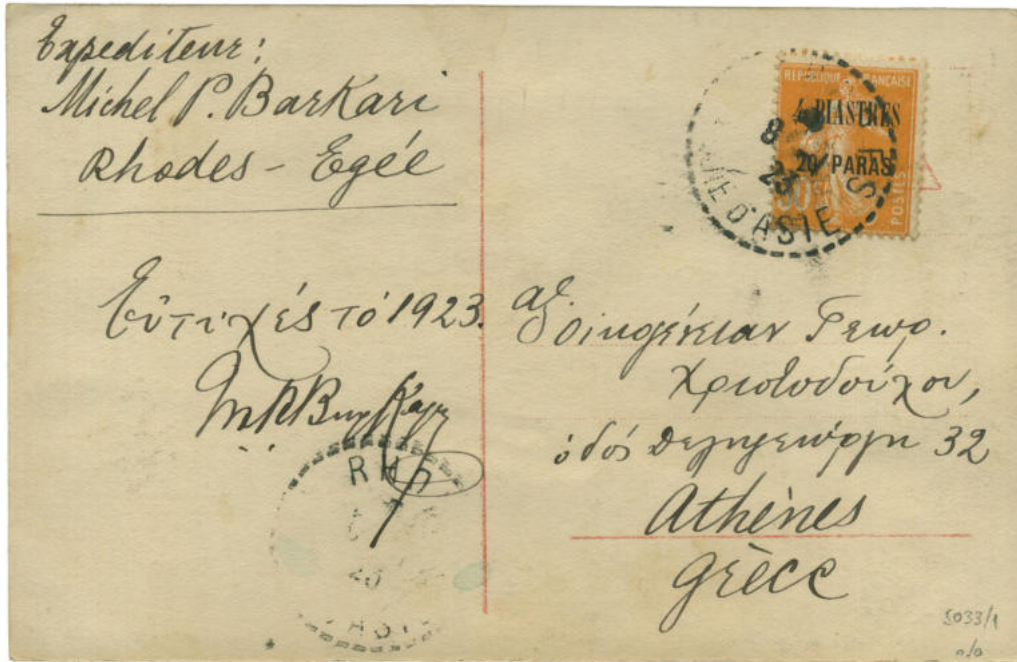 Expediteur:
Michel P. Barkari
Rhodes - Egée
Εὐτυχές τό 1923.
RÉPUBLIQUE FRANÇAISE
4 PIASTRES
20 PARAS
POSTES
8
23
QUIE D'ASIE
ἀξ. Οἰκογένειαν Γεωρ.
Χριστοδούλου,
ὁδός Δεληγεώργη 32
Athènes
Grèce
RHO
23
ASI
5033/1